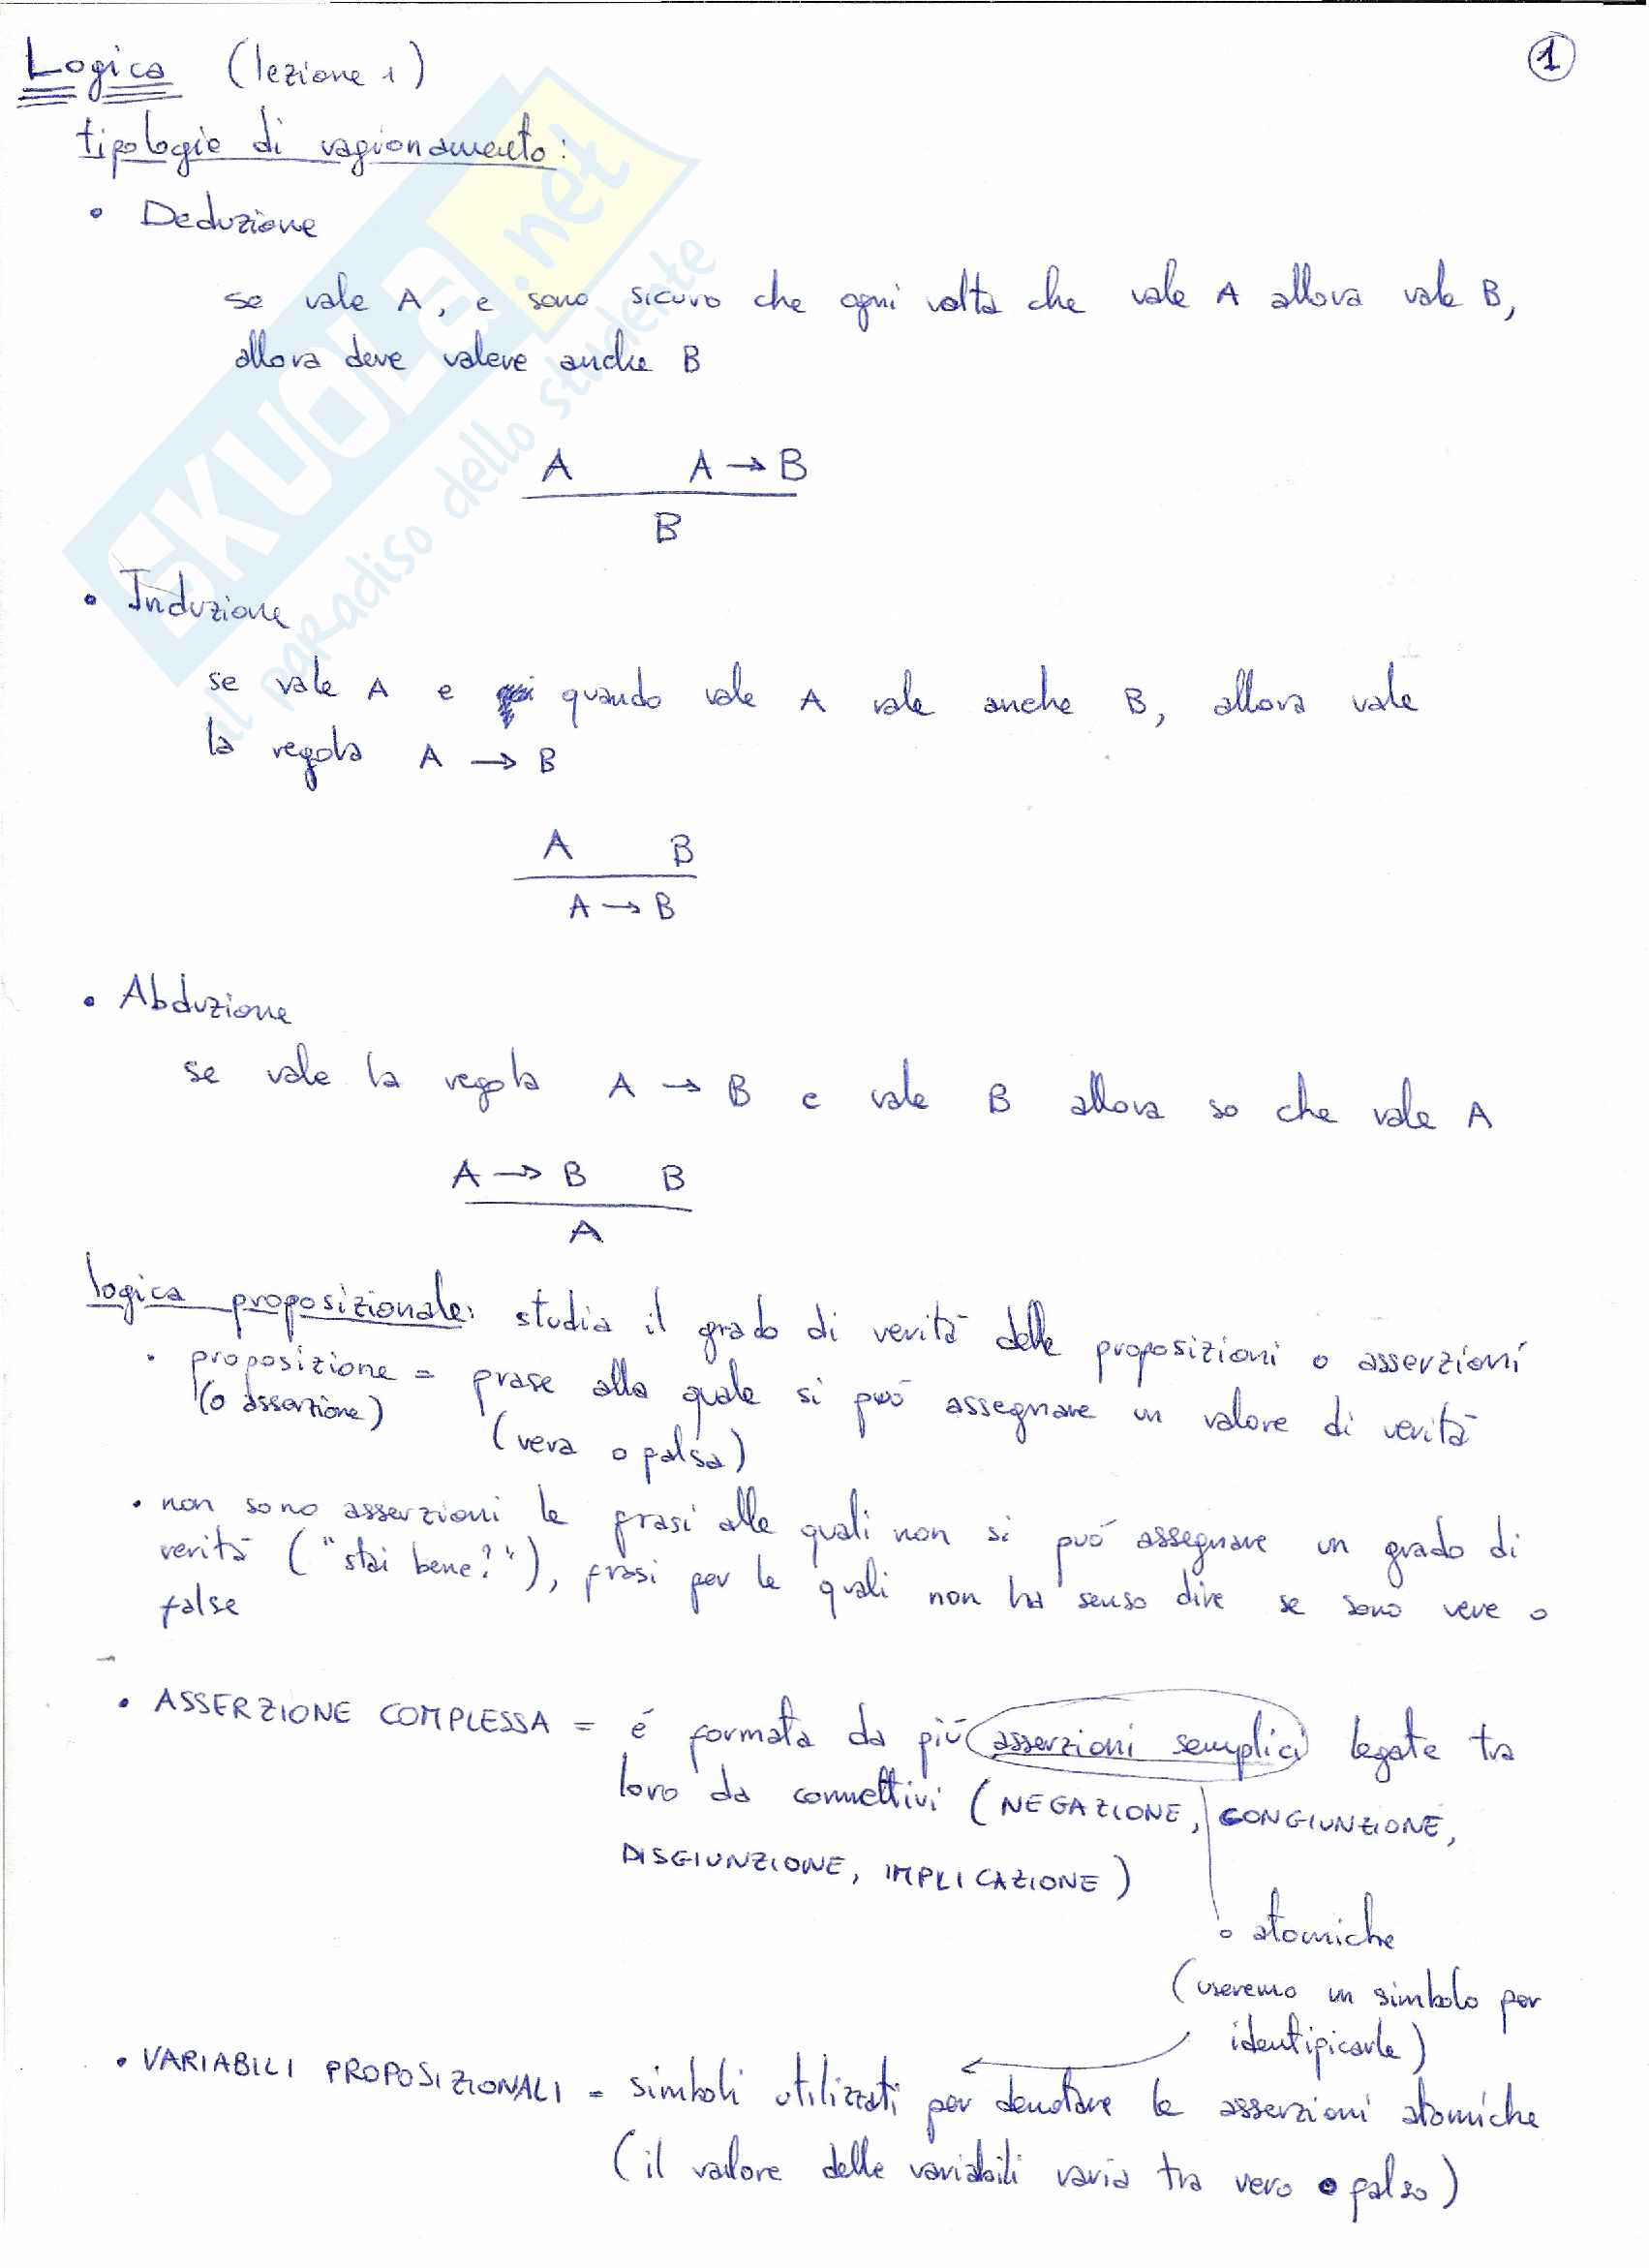 Logica (lezione 1)
1
tipologie di ragionamento:
• Deduzione
se vale A, e sono sicuro che ogni volta che vale A allora vale B,
allora deve valere anche B
A A → B
B
• Induzione
se vale A e quando vale A vale anche B, allora vale
la regola A → B
A B
A → B
• Abduzione
se vale la regola A → B e vale B allora so che vale A
A → B B
A
logica proposizionale: studia il grado di verità delle proposizioni o asserzioni
• proposizione = frase alla quale si può assegnare un valore di verità
(o asserzione) (vera o falsa)
• non sono asserzioni le frasi alle quali non si può assegnare un grado di
verità ("stai bene?"), frasi per le quali non ha senso dire se sono vere o
false
• ASSERZIONE COMPLESSA = é formata da più asserzioni semplici legate tra
loro da connettivi (NEGAZIONE, CONGIUNZIONE,
DISGIUNZIONE, IMPLICAZIONE)
o atomiche
(useremo un simbolo per
identificarle)
• VARIABILI PROPOSIZIONALI = simboli utilizzati per denotare le asserzioni atomiche
(il valore delle variabili varia tra vero e falso)
SKUOLA.net
il paradiso dello studente